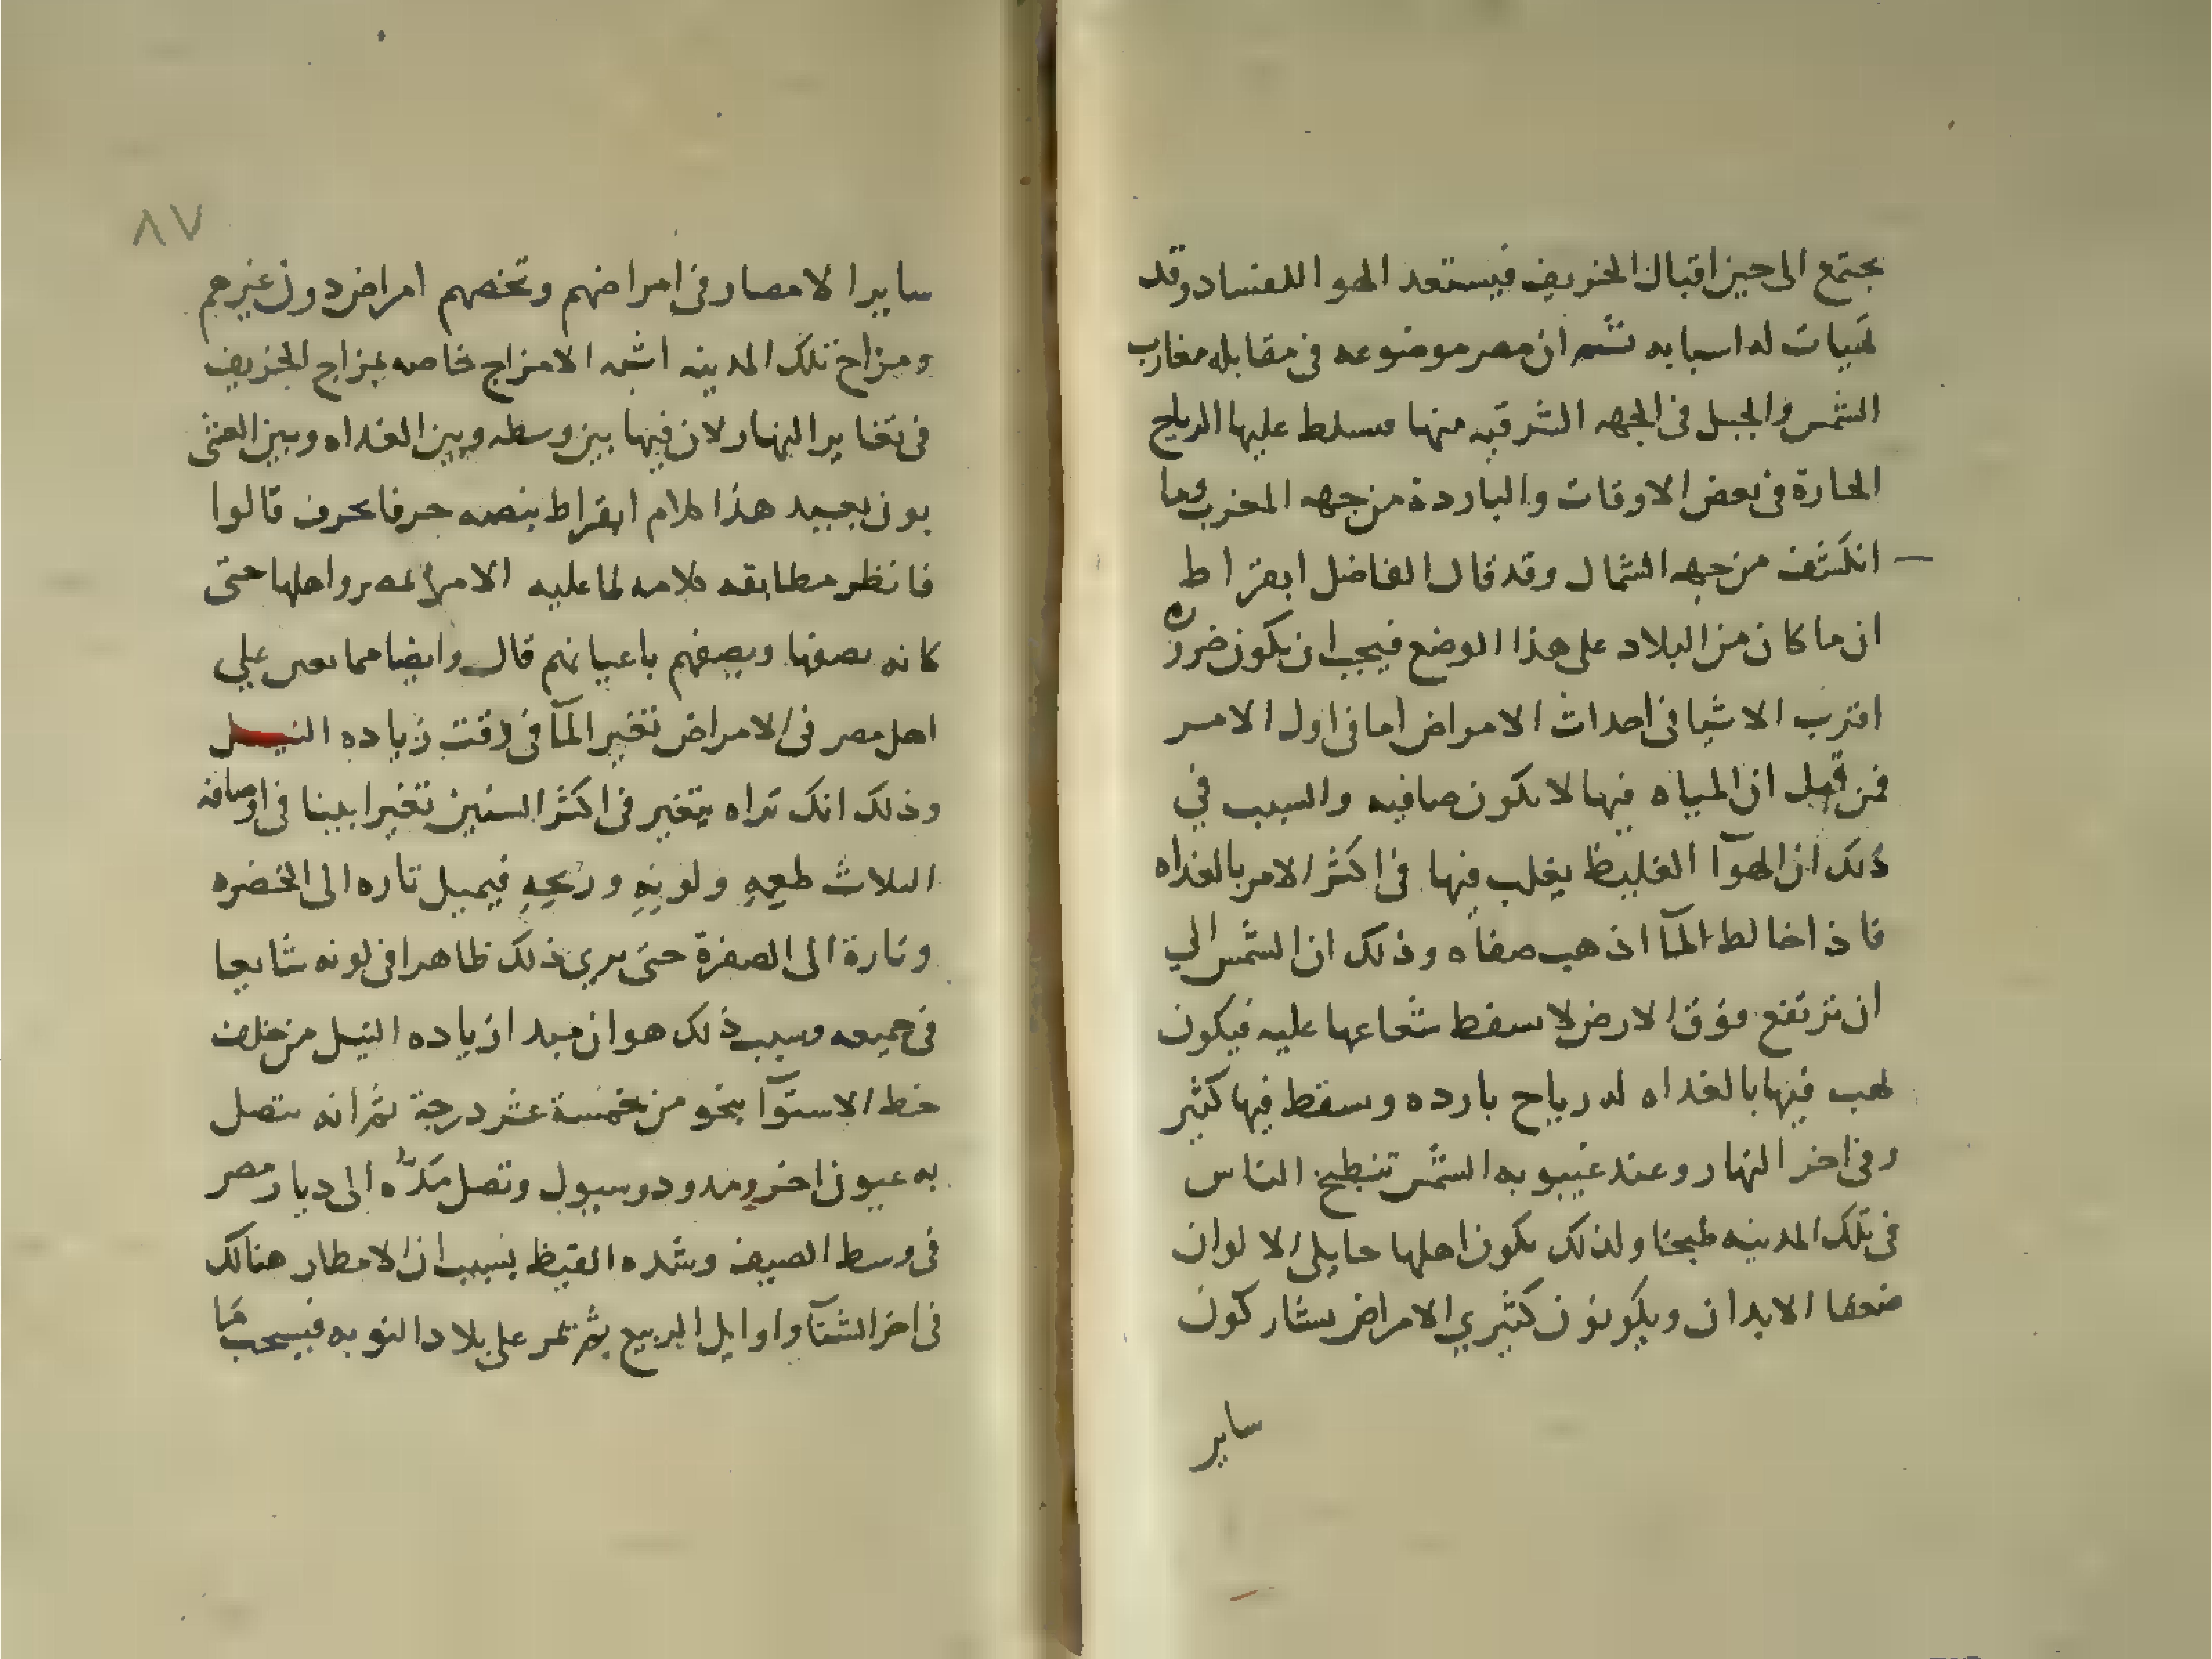 يجتمع الى حين اقبال الخريف فيستعد الهوا للفساد وقد
تهيات له اسبابه ثم ان مصر موضوعه فى مقابله مغارب
الشمس والجبل فى الجهه الشرقيه منها مسلط عليها الرياح
الحارة فى بعض الاوقات والباردة من جهه المغرب وما
انكشف من جهه الشمال وقد قال الفاضل ابقراط
ان ما كان من البلاد على هذا الوضع فيجب ان يكون ضروره
اقرب الاشيا فى احداث الامراض اما فى اول الامر
فمن قبل ان المياه فيها لا يكون صافيه والسبب في
ذلك ان الهوآ الغليظ يغلب فيها فى اكثر الامر بالغداه
فاذا خالط المآ اذهب صفاه وذلك ان الشمس الي
ان ترتفع فوق الارض لا يسقط شعاعها عليه فيكون
تهب فيها بالغداه له رياح بارده ويسقط فيها كثير
وفى اخر النهار وعند غيبوبه الشمس تنطبخ الناس
فى تلك المدينه طبخا ولذلك يكون اهلها حايلى الالوان
ضعفا الابدان ويكونون كثيري الامراض يشاركون
ساير
٨٧
ساير الامصار فى امراضهم وتخصهم امراض دون غيرهم
ومزاج تلك المدينه اشبه الامزاج خاصه بمزاج الخريف
فى تغاير النهار لان فيها بين وسطه وبين الغداه وبين العشى
بون بعيد هذا كلام ابقراط بنصه حرفا بحرف قالوا
فانظر مطابقه كلامه لما عليه الامر واهلها حتى
كانه يصفها ويصفهم باعيانهم قال وايضا مما يعين علي
اهل مصر فى الامراض تغير المآ فى وقت زياده النيل
وذلك انك تراه يتغير فى اكثر السنين تغيرا بينا فى اوصافه
الثلاث طعمه ولونه وريحه فيميل تاره الى الخضره
وتارة الى الصفرة حتى يرى ذلك ظاهرا فى لونه شايعا
فى جميعه وسبب ذلك هو ان مبدا زياده النيل من خلف
خط الاستوآ بنحو من خمسة عشر درجة ثم انه يتصل
به عيون اخر ومدود وسيول وتصل مدّه الى ديار مصر
فى وسط الصيف وشده القيظ بسبب ان الامطار هنالك
فى اخر الشتآ واوايل الربيع ثم تمر على بلاد النوبه فيسحب ما